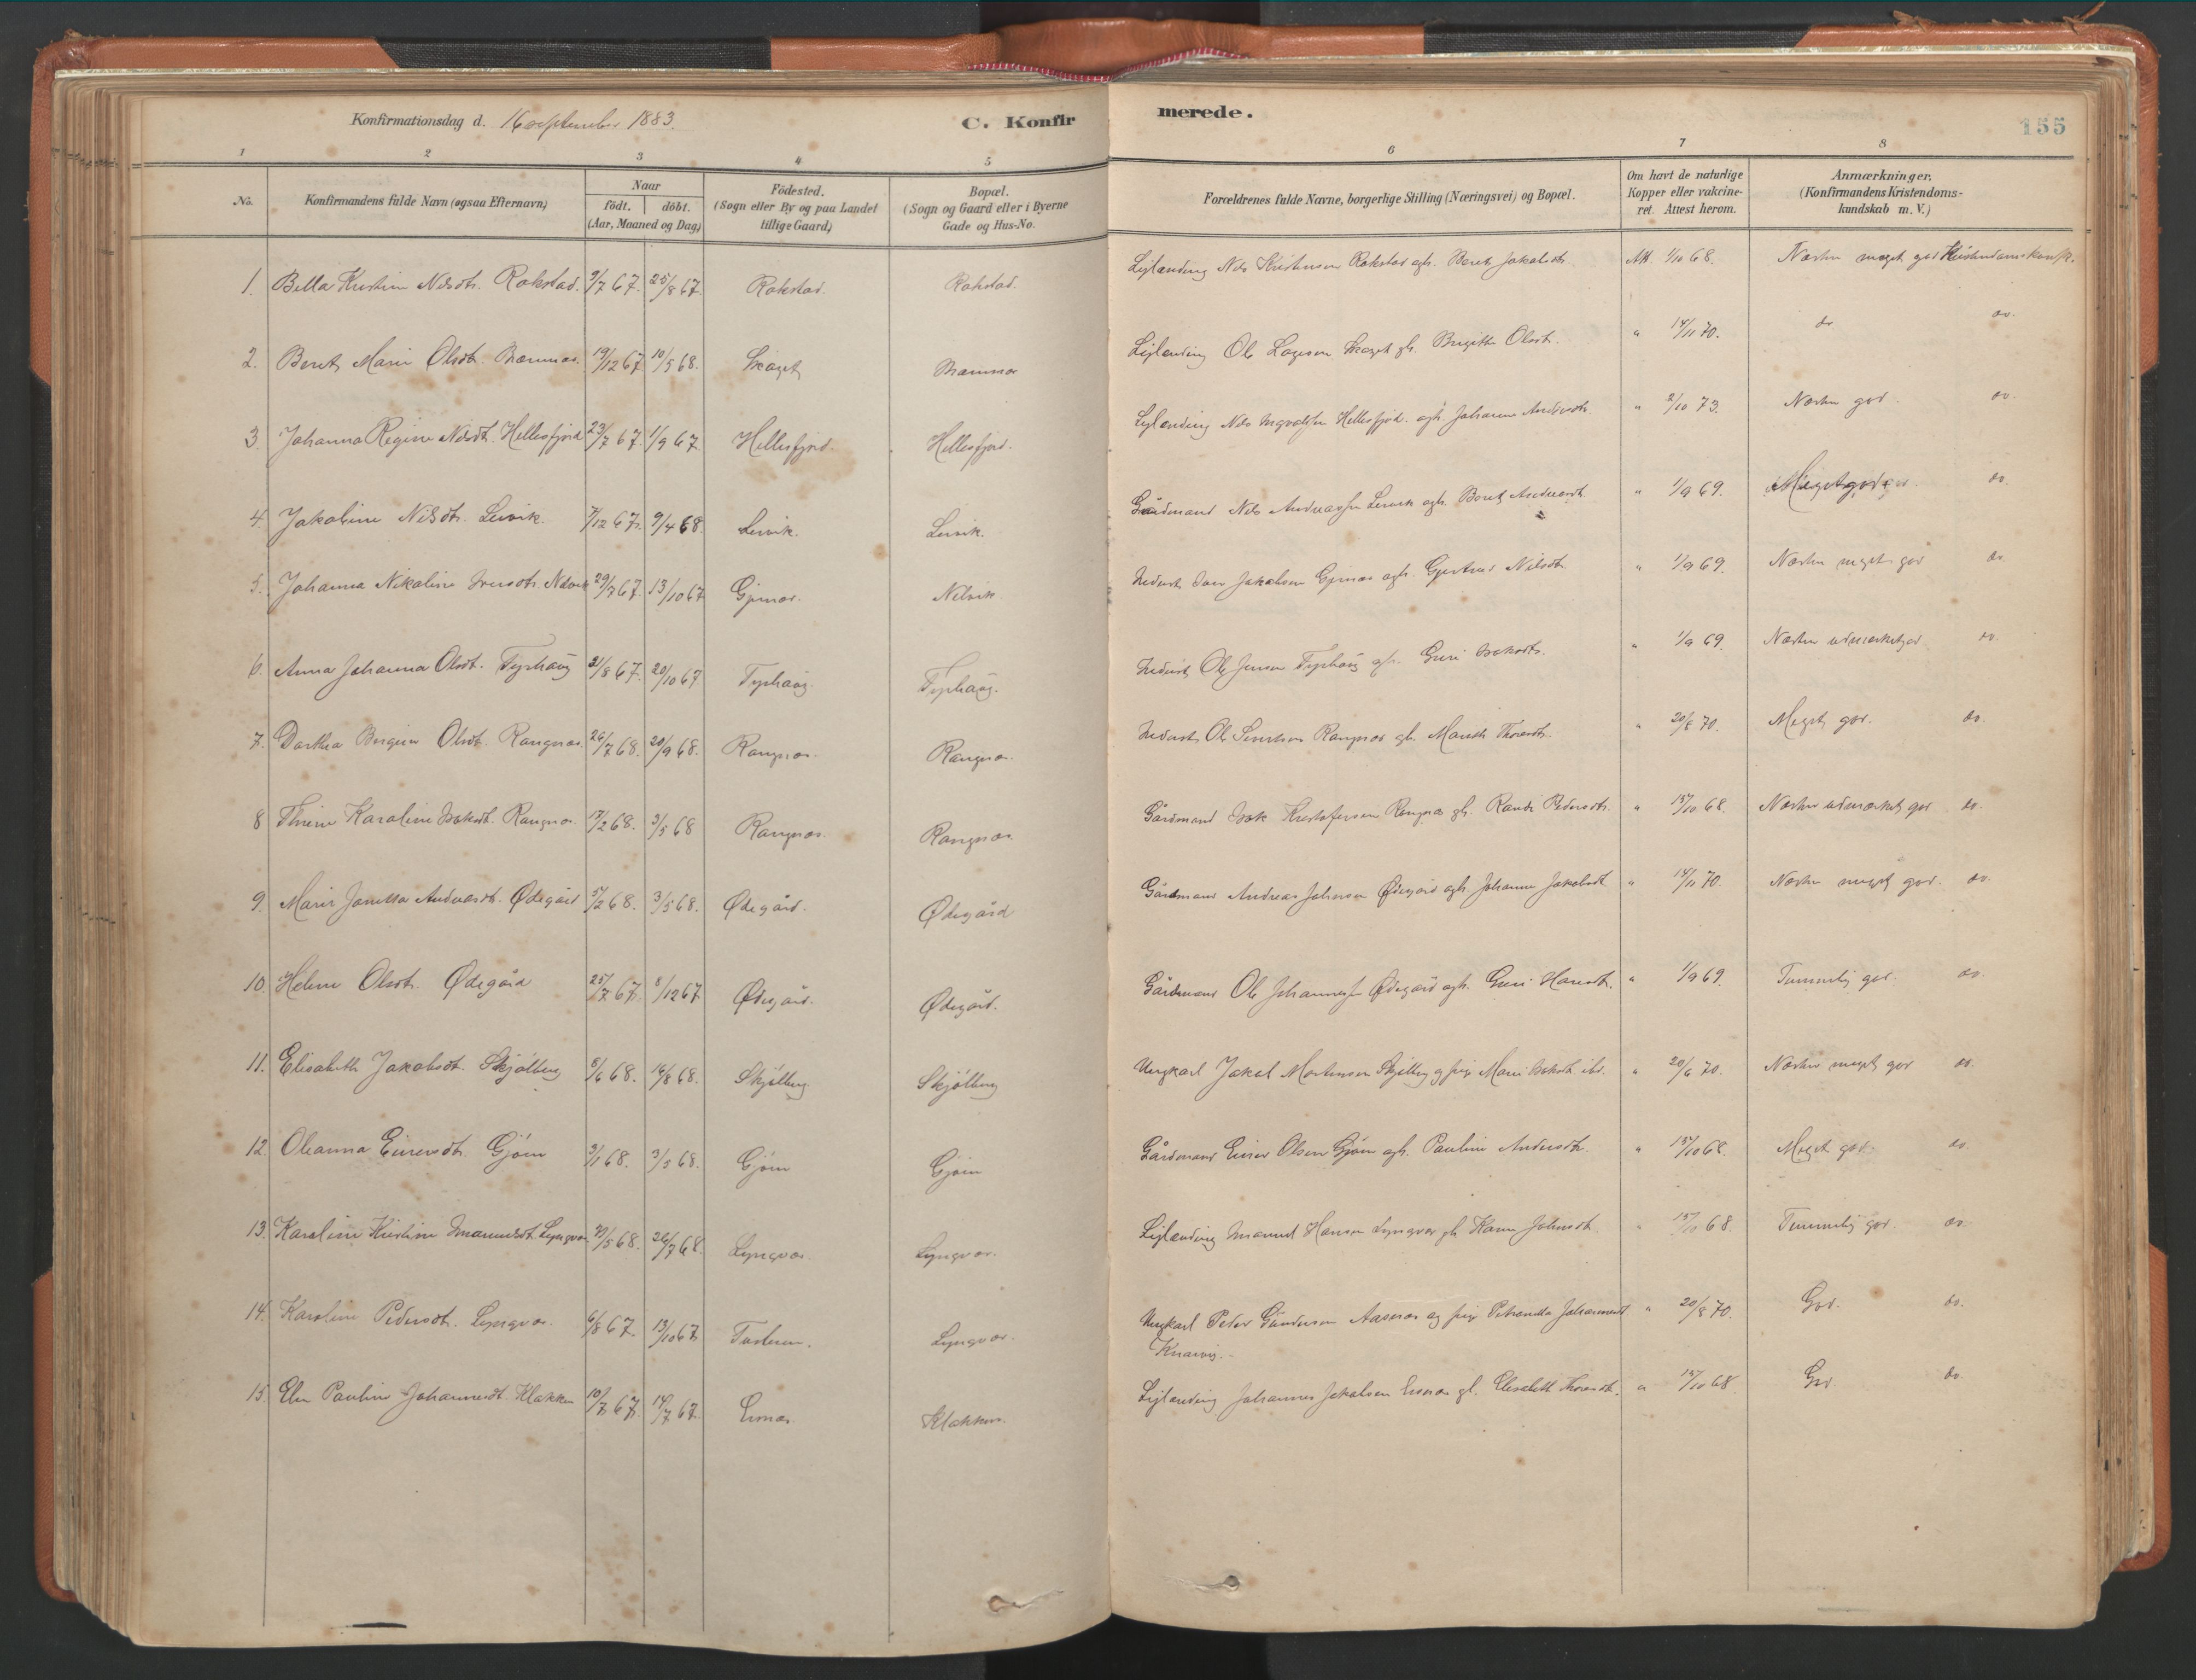 Konfirmationsdag d. 16 september 1883. C. Konfirmerede. 155
1 2 3 4 5 6 7 8
No. Konfirmandens fulde Navn (ogsaa Efternavn) Naar födt. döbt. (Aar, Maaned og Dag) Födested. (Sogn eller By og paa Landet tillige Gaard) Bopæl. (Sogn og Gaard eller i Byerne Gade og Hus-No. Forældrenes fulde Navne, borgerlige Stilling (Næringsvei) og Bopæl. Om havt de naturlige Kopper eller vakcineret. Attest herom. Anmærkninger. (Konfirmandens Kristendomskundskab m. V.)
1. Bella Kristine Nilsdtr. Rokstad. 9/7 67. 25/8 67. Rokstad. Rokstad. Leilænding Nils Kristensen Rokstad ogh. Beret Jakobsdtr. Att. 1/10 68. Næsten meget god Kristendomskunsk.
2. Beret Marie Olsdtr. 19/12 67 10/5 68. Skaget Leilænding Ole Skaget gh. Brigitte Olsdtr. " 14/11 70. do do.
3. Johanna Regine Nilsdtr. Hellesfjord 23/7 67. 1/9 67. Hellesfjord. Hellesfjord. Leilænding Nils Hellesfjord. ogh. Johanna Andersdtr. " 2/10 73. Næsten god. do.
4. Jakobine Nilsdtr. Leivik. 7/12 67. 9/4 68. Leivik. Leivik. Gårdmand Nils Andreassen Leivik ogh. Beret Andreasdtr. " 1/9 69. Meget god do.
5. Johanna Nikoline Iversdtr. 29/7 67. 13/10 67 Nelvik Inderst Iver Jakobsen ogh. Gjertrud Nilsdtr. " 1/9 69. Næsten meget god do.
6. Anna Johanna Olsdtr. Typhaug 21/8 67. 20/10 67 Typhaug. Typhaug. Inderst Ole Jensen Typhaug gh. Guri Isaksdtr. " 1/9 69. Næsten udmærket god do.
7. Dorthea Bergine Olsdtr. Rangnæs. 26/7 68. 20/9 68. Rangnæs. Rangnæs. Inderst Ole Sivertsen Rangnæs gh. Marith Thoresdtr. " 20/8 70. Meget god. do.
8 Thrine Karoline Isaksdtr. Rangnæs. 17/2 68. 3/5 68 Rangnæs. Rangnæs. Gårdmand Isak Kristofersen Rangnæs gh. Randi Pedersdtr. " 15/10 68. Næsten udmærket god do.
9. Marie Andreasdtr. Ødegård 5/2 68. 3/5 68. Ødegård. Ødegård Gårdmand Andreas Johnsen Ødegård ogh. Johanne Jakobsdtr. " 14/11 70. Næsten meget god. do.
10. Helene Olsdtr. Ødegård 25/7 67. 8/12 67 Ødegård. Ødegård. Gårdmand Ole Johannessen Ødegård ogh. Guri Hansdtr. " 1/9 69. Temmelig god. do.
11. Elisabeth Jakobsdtr. Skjölberg 8/6 68. 16/8 68. Skjölberg Skjölberg Ungkarl Jakob Mortensen Skjölberg og pige Marie Isaksdtr. ibd. " 20/6 70. Næsten meget god do.
12. Oleanna Einersdtr. Gjöen 3/1 68. 3/5 68. Gjöen Gjöen Gårdmand Einer Olsen Gjöen ogh. Pauline Andersdtr. " 15/10 68. Meget god. do.
13. Karoline Kristine Imanuelsdtr. Lyngvær. 29/5 68. 26/7 68. Lyngvær. Lyngvær. Leilænding Imanuel Hansen Lyngvær gh. Karen Johnsdtr. " 15/10 68. Temmelig god. do.
14. Karoline Pedersdtr. Lyngvær. 6/8 67. 13/10 67. Tusteren. Lyngvær. Ungkarl Peder Gundersen Aasnæs og pige Petronella Johannesdtr.
" 20/8 70. God. do.
15. Elen Pauline Johannesdtr. Klakken 10/7 67. 14/7 67. Ersnæs. Klakken. Leilænding Johannes Jakobsen Ersnæs gh. Elisabeth Thoresdtr. " 15/10 68. God do.